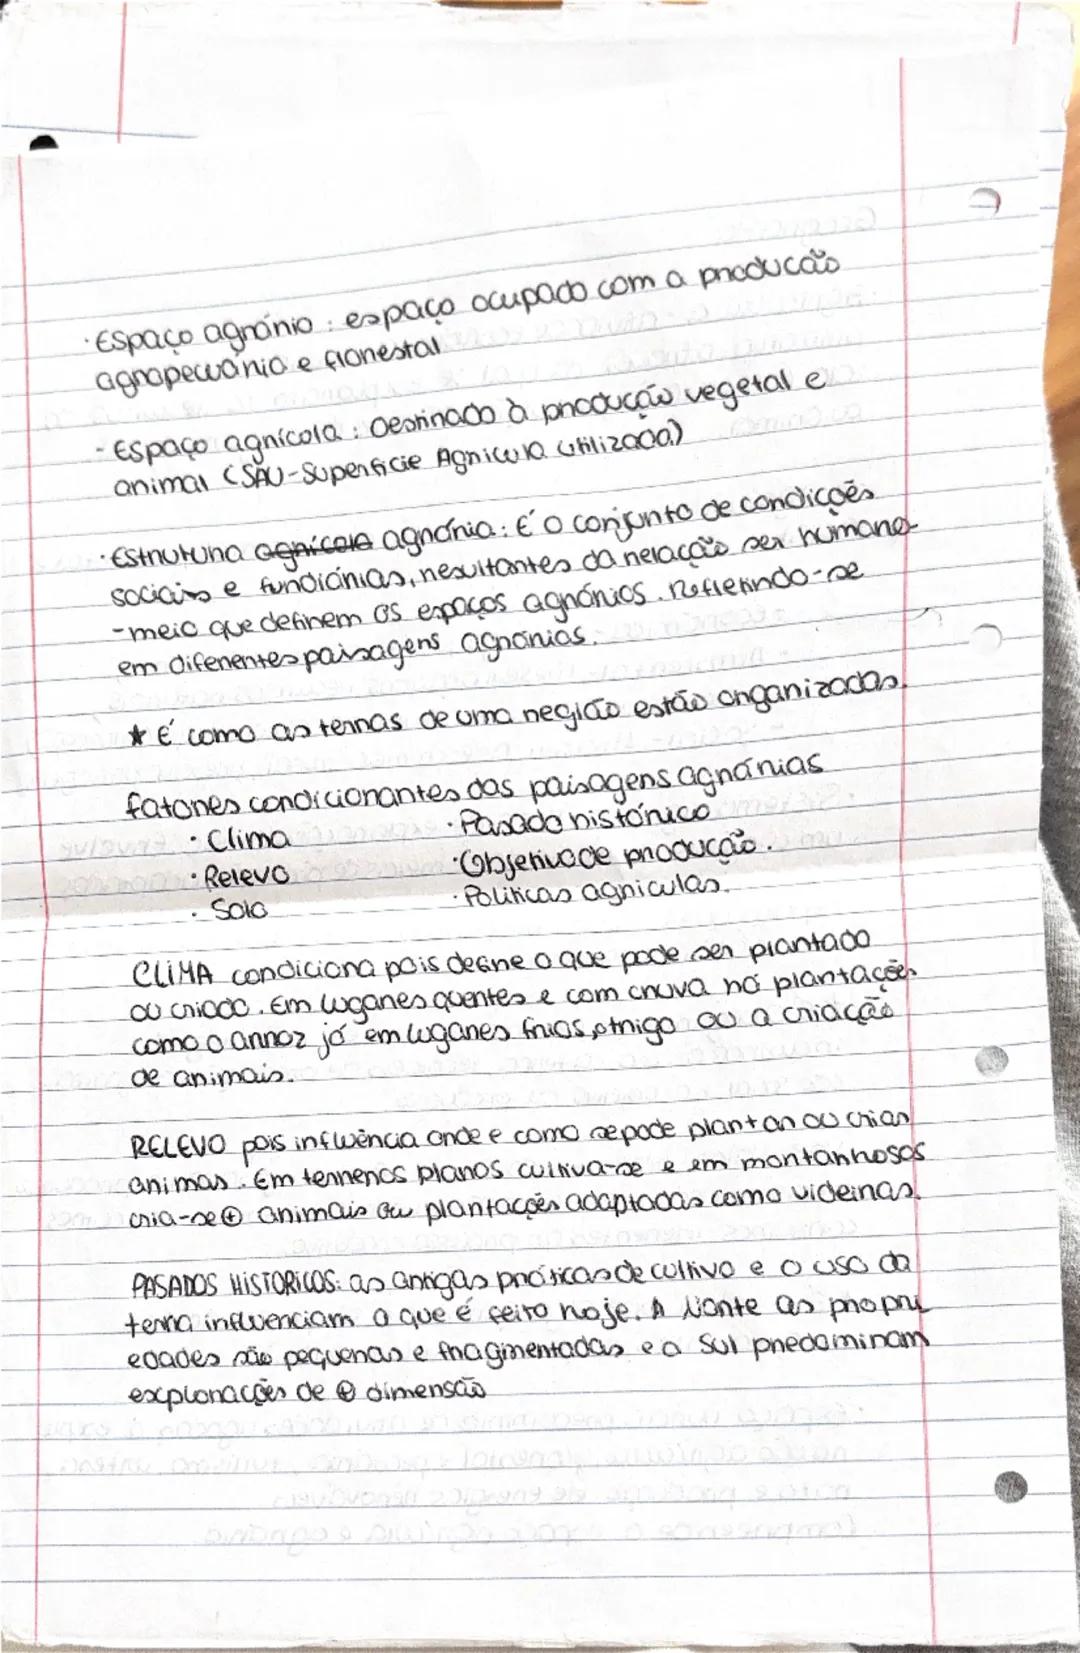 · Espaço agrário : espaço ocupado com a producão
agropecuária e florestal
- Espaço agrícola : Destinado à produção vegetal e
animal (SAU-Superficie Agricula Utilizada)
· Estrutura agrícola agrária : É o conjunto de condições
sociais e fundiárias, resultantes da relação ser humano-
-meio que definem os espaços agrários. Refletindo-se
em diferentes paisagens agrárias.
★ É como as terras de uma região estão organizadas.
fatores condicionantes das paisagens agrárias
· Clima · Pasado histórico
· Relevo · Objetivo de producção.
· Solo · Politicas agriculas.
CLIMA condiciona pois define o que pode ser plantado
ou criado. Em lugares quentes e com chuva há plantações
como o arroz já em lugares frios, o trigo ou a criacção
de animais.
RELEVO pois influência onde e como se pode plantar ou criar
animas. Em terrenos planos cultiva-se e em montanhosos
cria-se ⊕ animais ou plantações adaptadas como videiras.
PASADOS HISTORICOS: as antigas práticas de cultivo e o uso da
terra influenciam o que é feito hoje. A Norte as propri
edades são pequenas e fragmentadas e a Sul predominam
explorações de ⊕ dimensão